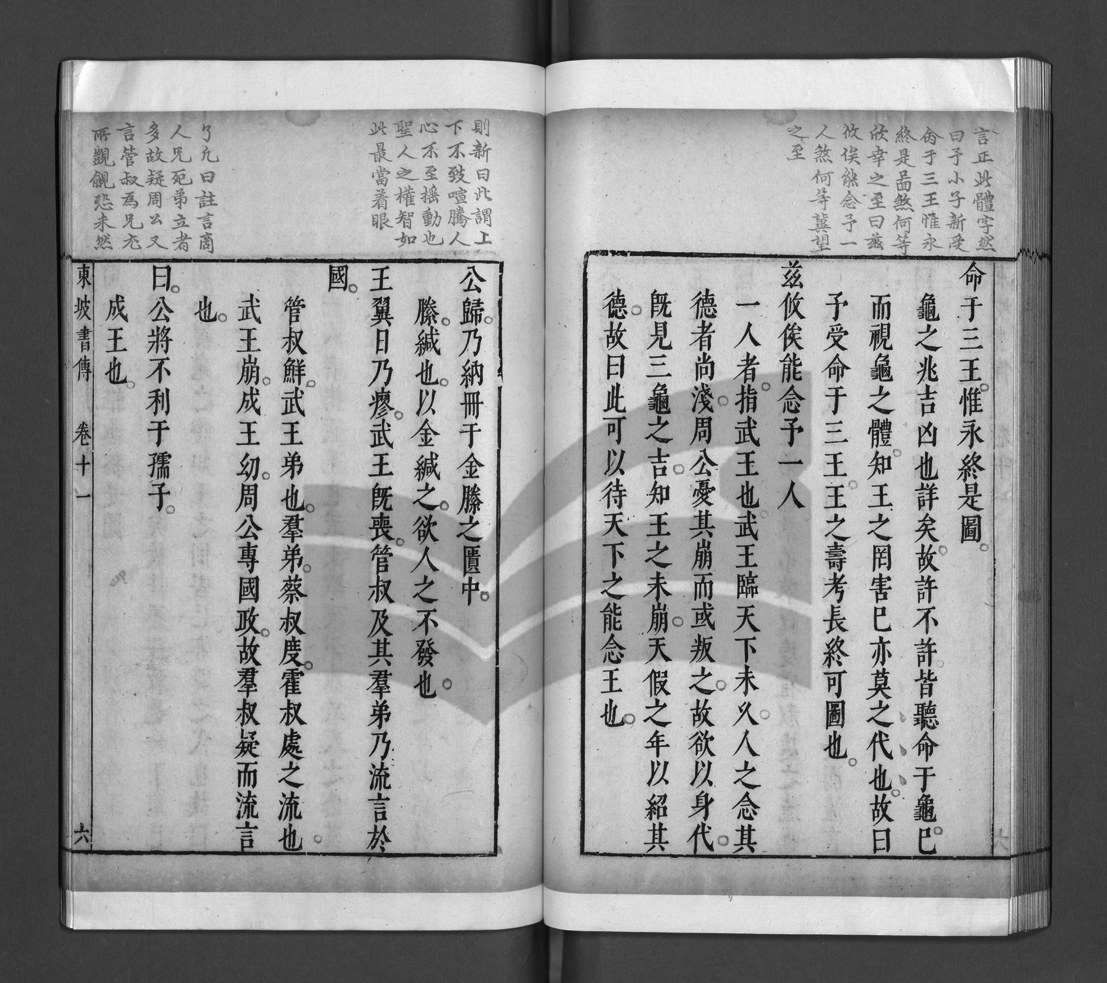 言正此體字然
曰予小子新受
命于三王惟永
終是啚煞何等
欣幸之至曰茲
攸俟能念予一
人煞何等龔望
之至
命于三王惟永終是圖
龜之兆吉凶也詳矣故許不許皆聽命于龜巳
而視龜之體知王之罔害巳亦莫之代也故曰
予受命于三王王之壽考長終可圖也
茲攸俟能念予一人
一人者指武王也武王臨天下未乆人之念其
德者尚淺周公憂其崩而或叛之故欲以身代
旣見三龜之吉知王之未崩天假之年以紹其
德故曰此可以待天下之能念王也
則新曰此謂上
下不致喧騰人
心不至揺動也
聖人之權智如
此最當着眼
公歸乃納冊于金縢之匱中
縢緘也以金緘之欲人之不發也
王翼日乃瘳武王旣喪管叔及其羣弟乃流言於
國
管叔鮮武王弟也羣弟蔡叔度霍叔處之流也
武王崩成王㓜周公專國政故羣叔疑而流言
也
曰公將不利于孺子
成王也
了凡曰註言商
人兄死弟立者
多故疑周公又
言管叔爲兄尤
所觀覦恐未然
東坡書傳 卷十一 六